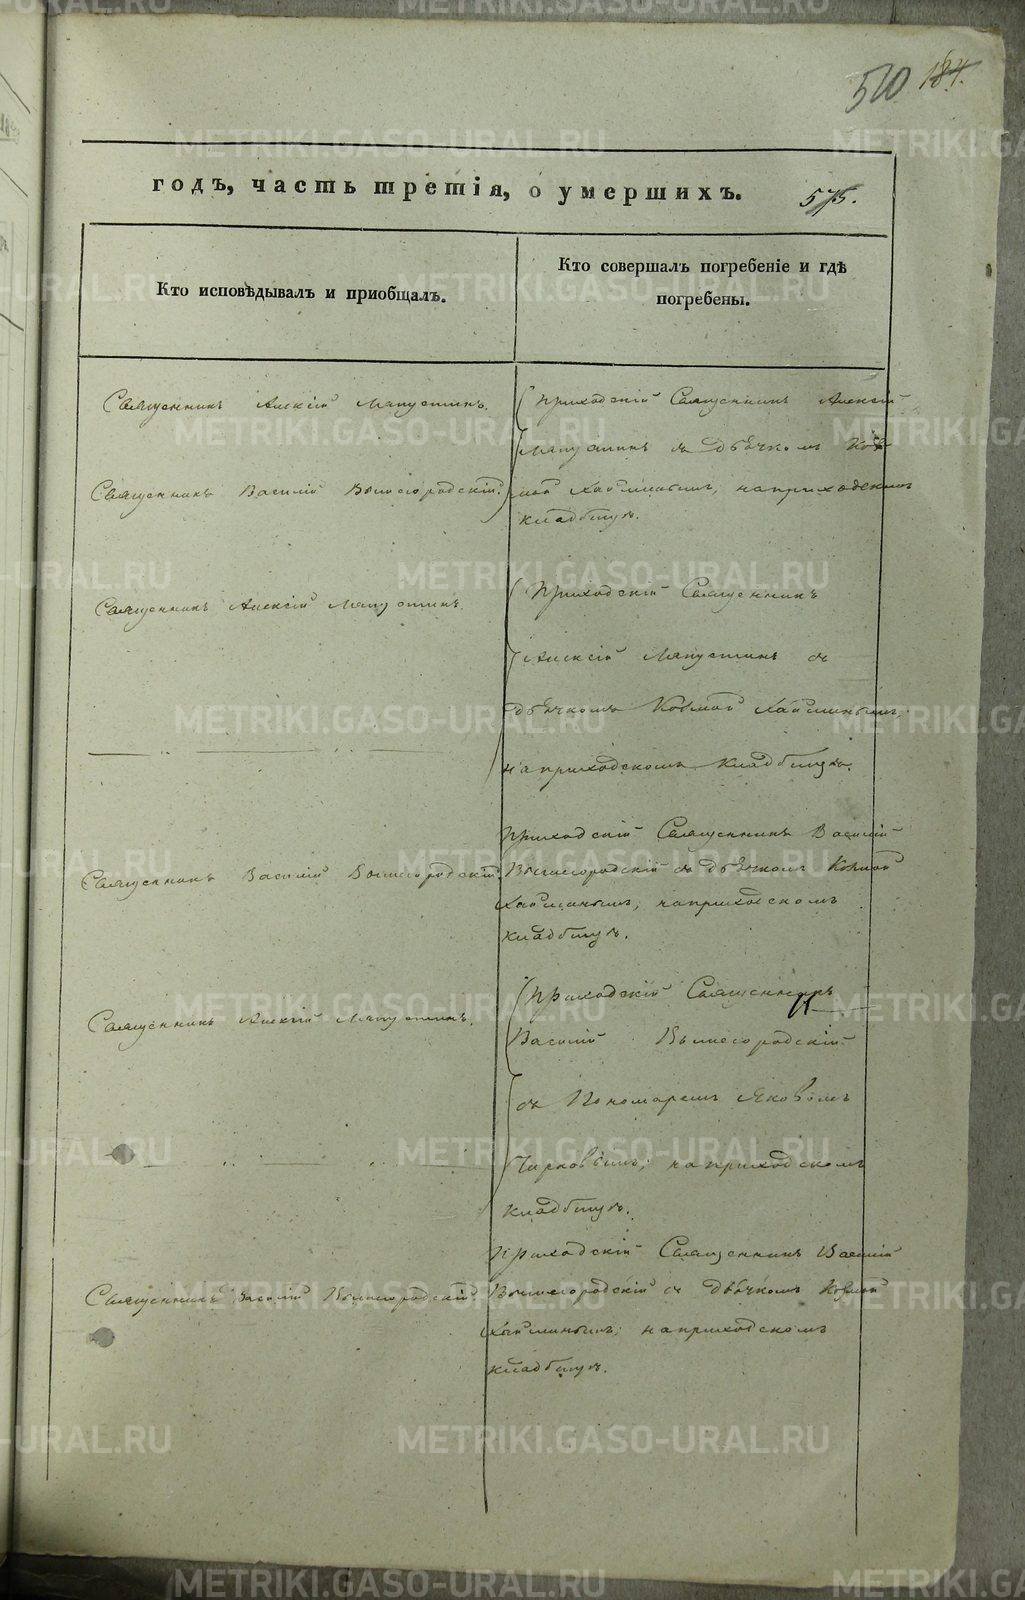 510 184.
годъ, часть третія, о умершихъ. 575.
Кто исповѣдывалъ и приобщалъ.
Кто совершалъ погребеніе и гдѣ
погребены.
Священникъ Алексій
Приходскій Священникъ Алексій
съ дьячкомъ
Священникъ Василій Вышегородскій.
на приходскомъ
кладбищѣ.
Священникъ Алексій
Приходскій Священникъ
Алексій съ
дьячкомъ Козмой
на приходскомъ кладбищѣ.
Приходскій Священникъ Василій
Священникъ Василій Вышегородскій.
Вышегородскій съ дьячкомъ Козмой
на приходскомъ
кладбищѣ.
Приходскій Священникъ
Священникъ Алексій
Василій Вышегородскій
съ Пономаремъ Яковомъ
на приходскомъ
кладбищѣ.
Приходскій Священникъ Василій
Священникъ Василій Вышегородскій
Вышегородскій съ дьячкомъ Козмой
на приходскомъ
кладбищѣ.
METRIKI.GASO-URAL.RU